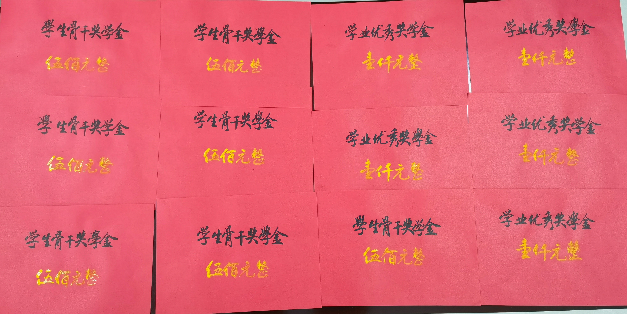 学生骨干奖学金
伍佰元整
学生骨干奖学金
伍佰元整
学业优秀奖学金
壹仟元整
学业优秀奖学金
壹仟元整
学生骨干奖学金
伍佰元整
学生骨干奖学金
伍佰元整
学业优秀奖学金
壹仟元整
学业优秀奖学金
壹仟元整
学生骨干奖学金
伍佰元整
学生骨干奖学金
伍佰元整
学生骨干奖学金
伍佰元整
学业优秀奖学金
壹仟元整